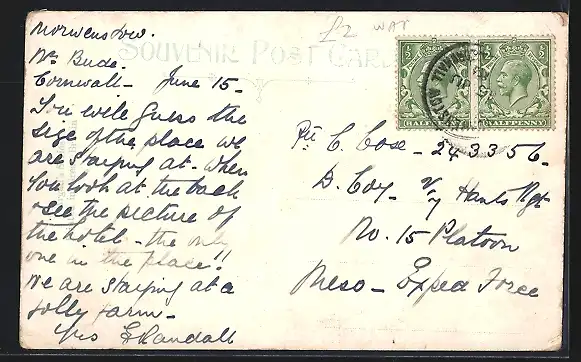 £2 WAT
SOUVENIR POST CARD
Morwenstow.
Nr Bude.
Cornwall - June 15 -
You will guess the
size of the place we
are staying at - when
you look at the back
& see the picture of
the hotel - the only
one in the place!!
We are staying at a
jolly farm -
Yrs E Randall
½ ½
HALFPENNY HALFPENNY
MORWENSTOW
Pte C. Coxe - 243356 -
D. Coy - Hants Rgt
No. 15 Platoon
Meso - Exped Force